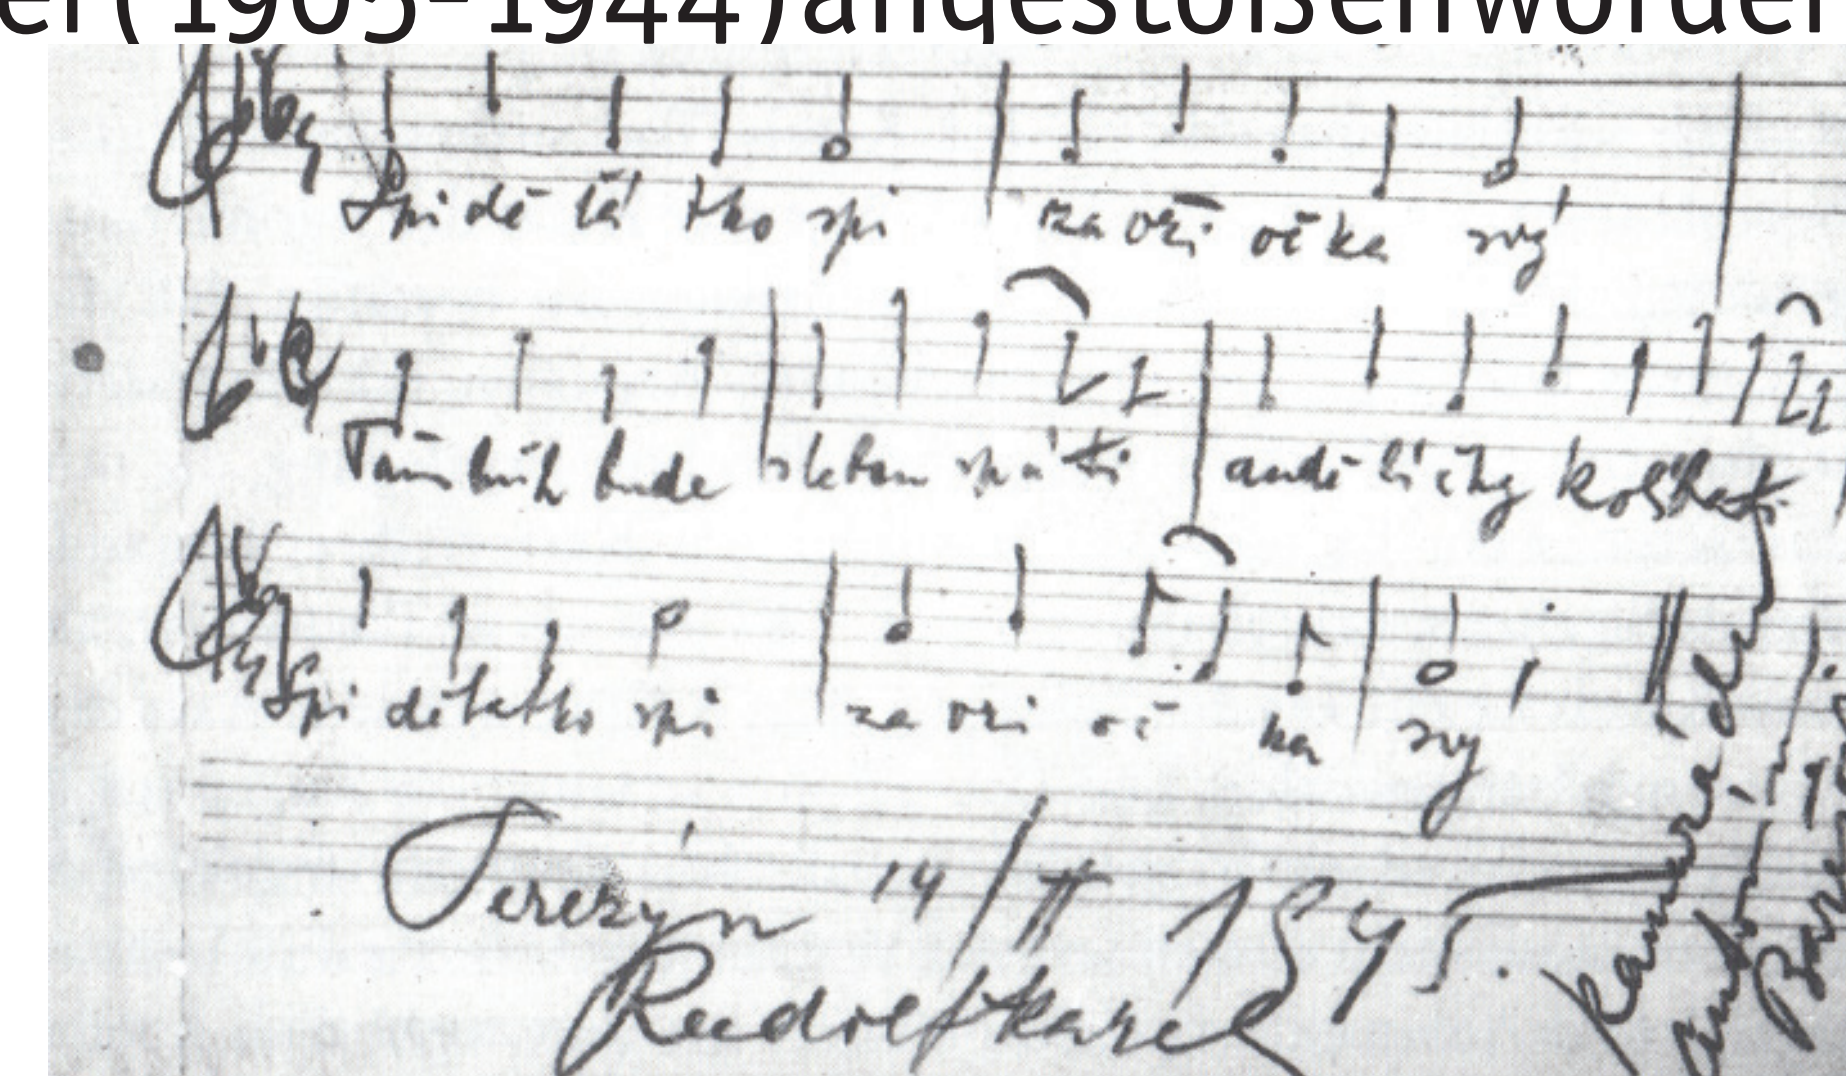 er(1905-1944)angestoßenworden
Spi dě ťá tko spi za vři oč ka svý
Tam bůh bude s tebou spá ti andě lí čky kolíbati
Spi děťátko spi za vři oč ka svý
Terezín 14/II 1945.
Rudolf Karel
Kamarádu